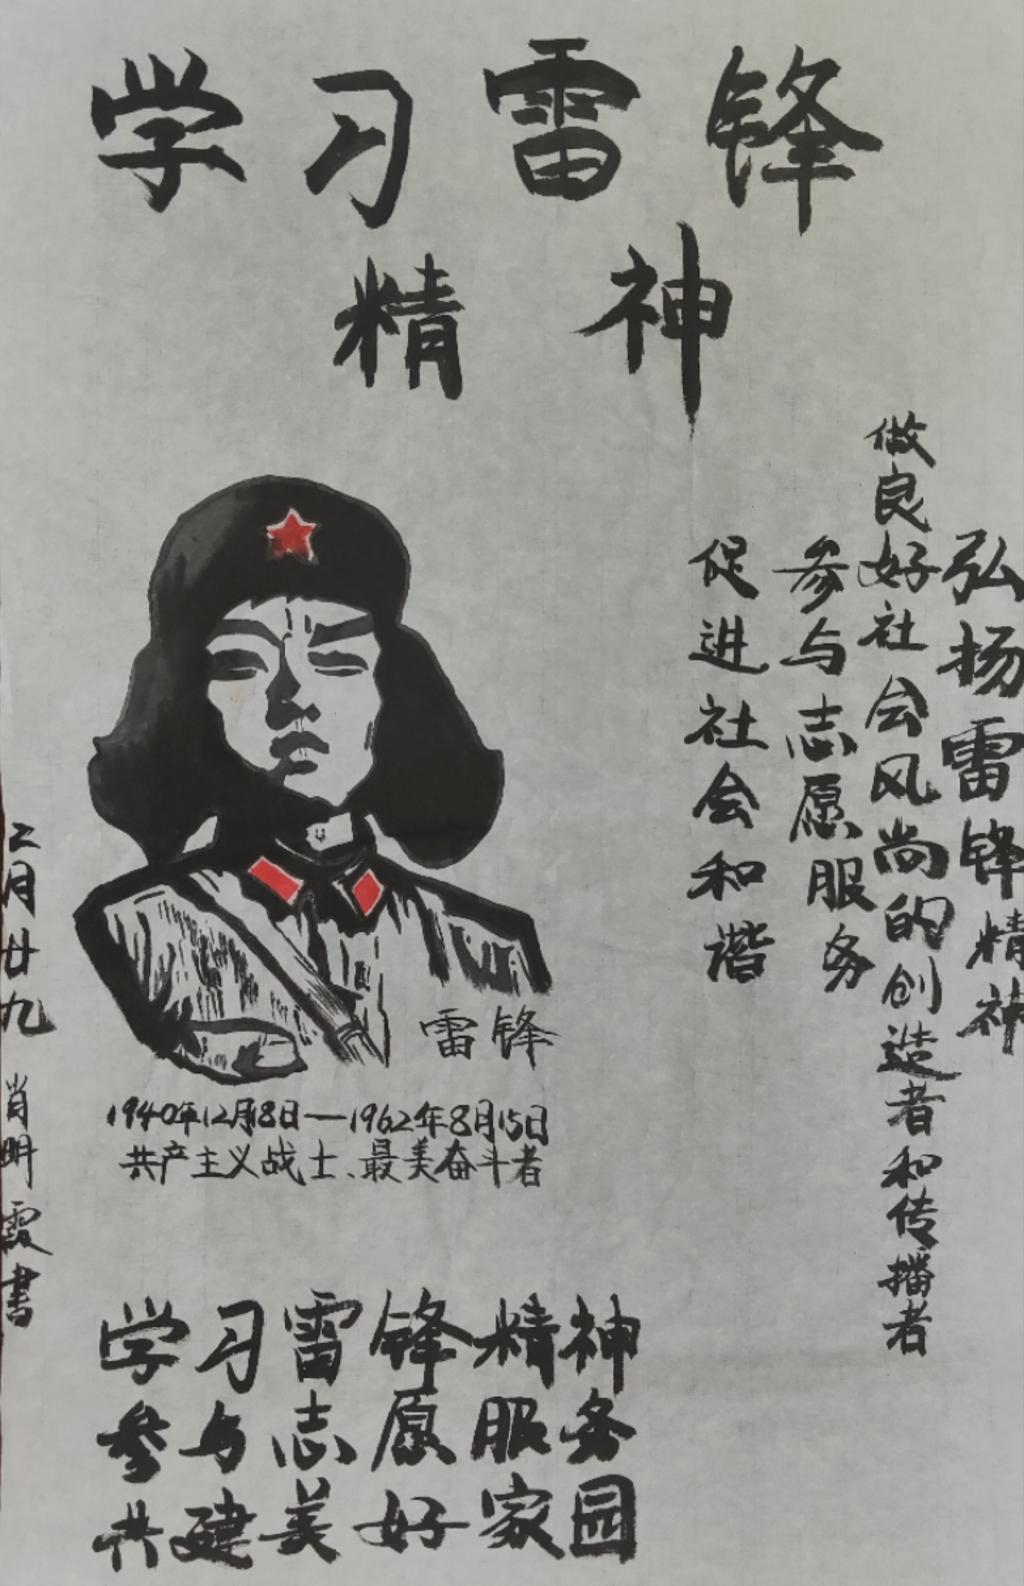 学习雷锋
精神
弘扬雷锋精神
做良好社会风尚的创造者和传播者
参与志愿服务
促进社会和谐
雷锋
1940年12月18日—1962年8月15日
共产主义战士、最美奋斗者
学习雷锋精神
参与志愿服务
共建美好家园
二月廿九 肖明霞書